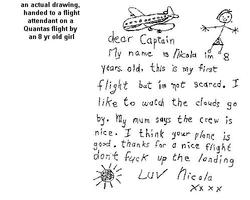 an actual drawing,
handed to a flight
attendant on a
Quantas flight by
an 8 yr old girl
dear Captain
My name is Nicola im 8
years old, this is my first
flight but im not scared. I
like to watch the clouds go
by. My mum says the crew is
nice. I think your plane is
good. thanks for a nice flight
dont fuck up the landing
LUV Nicola
xxxx